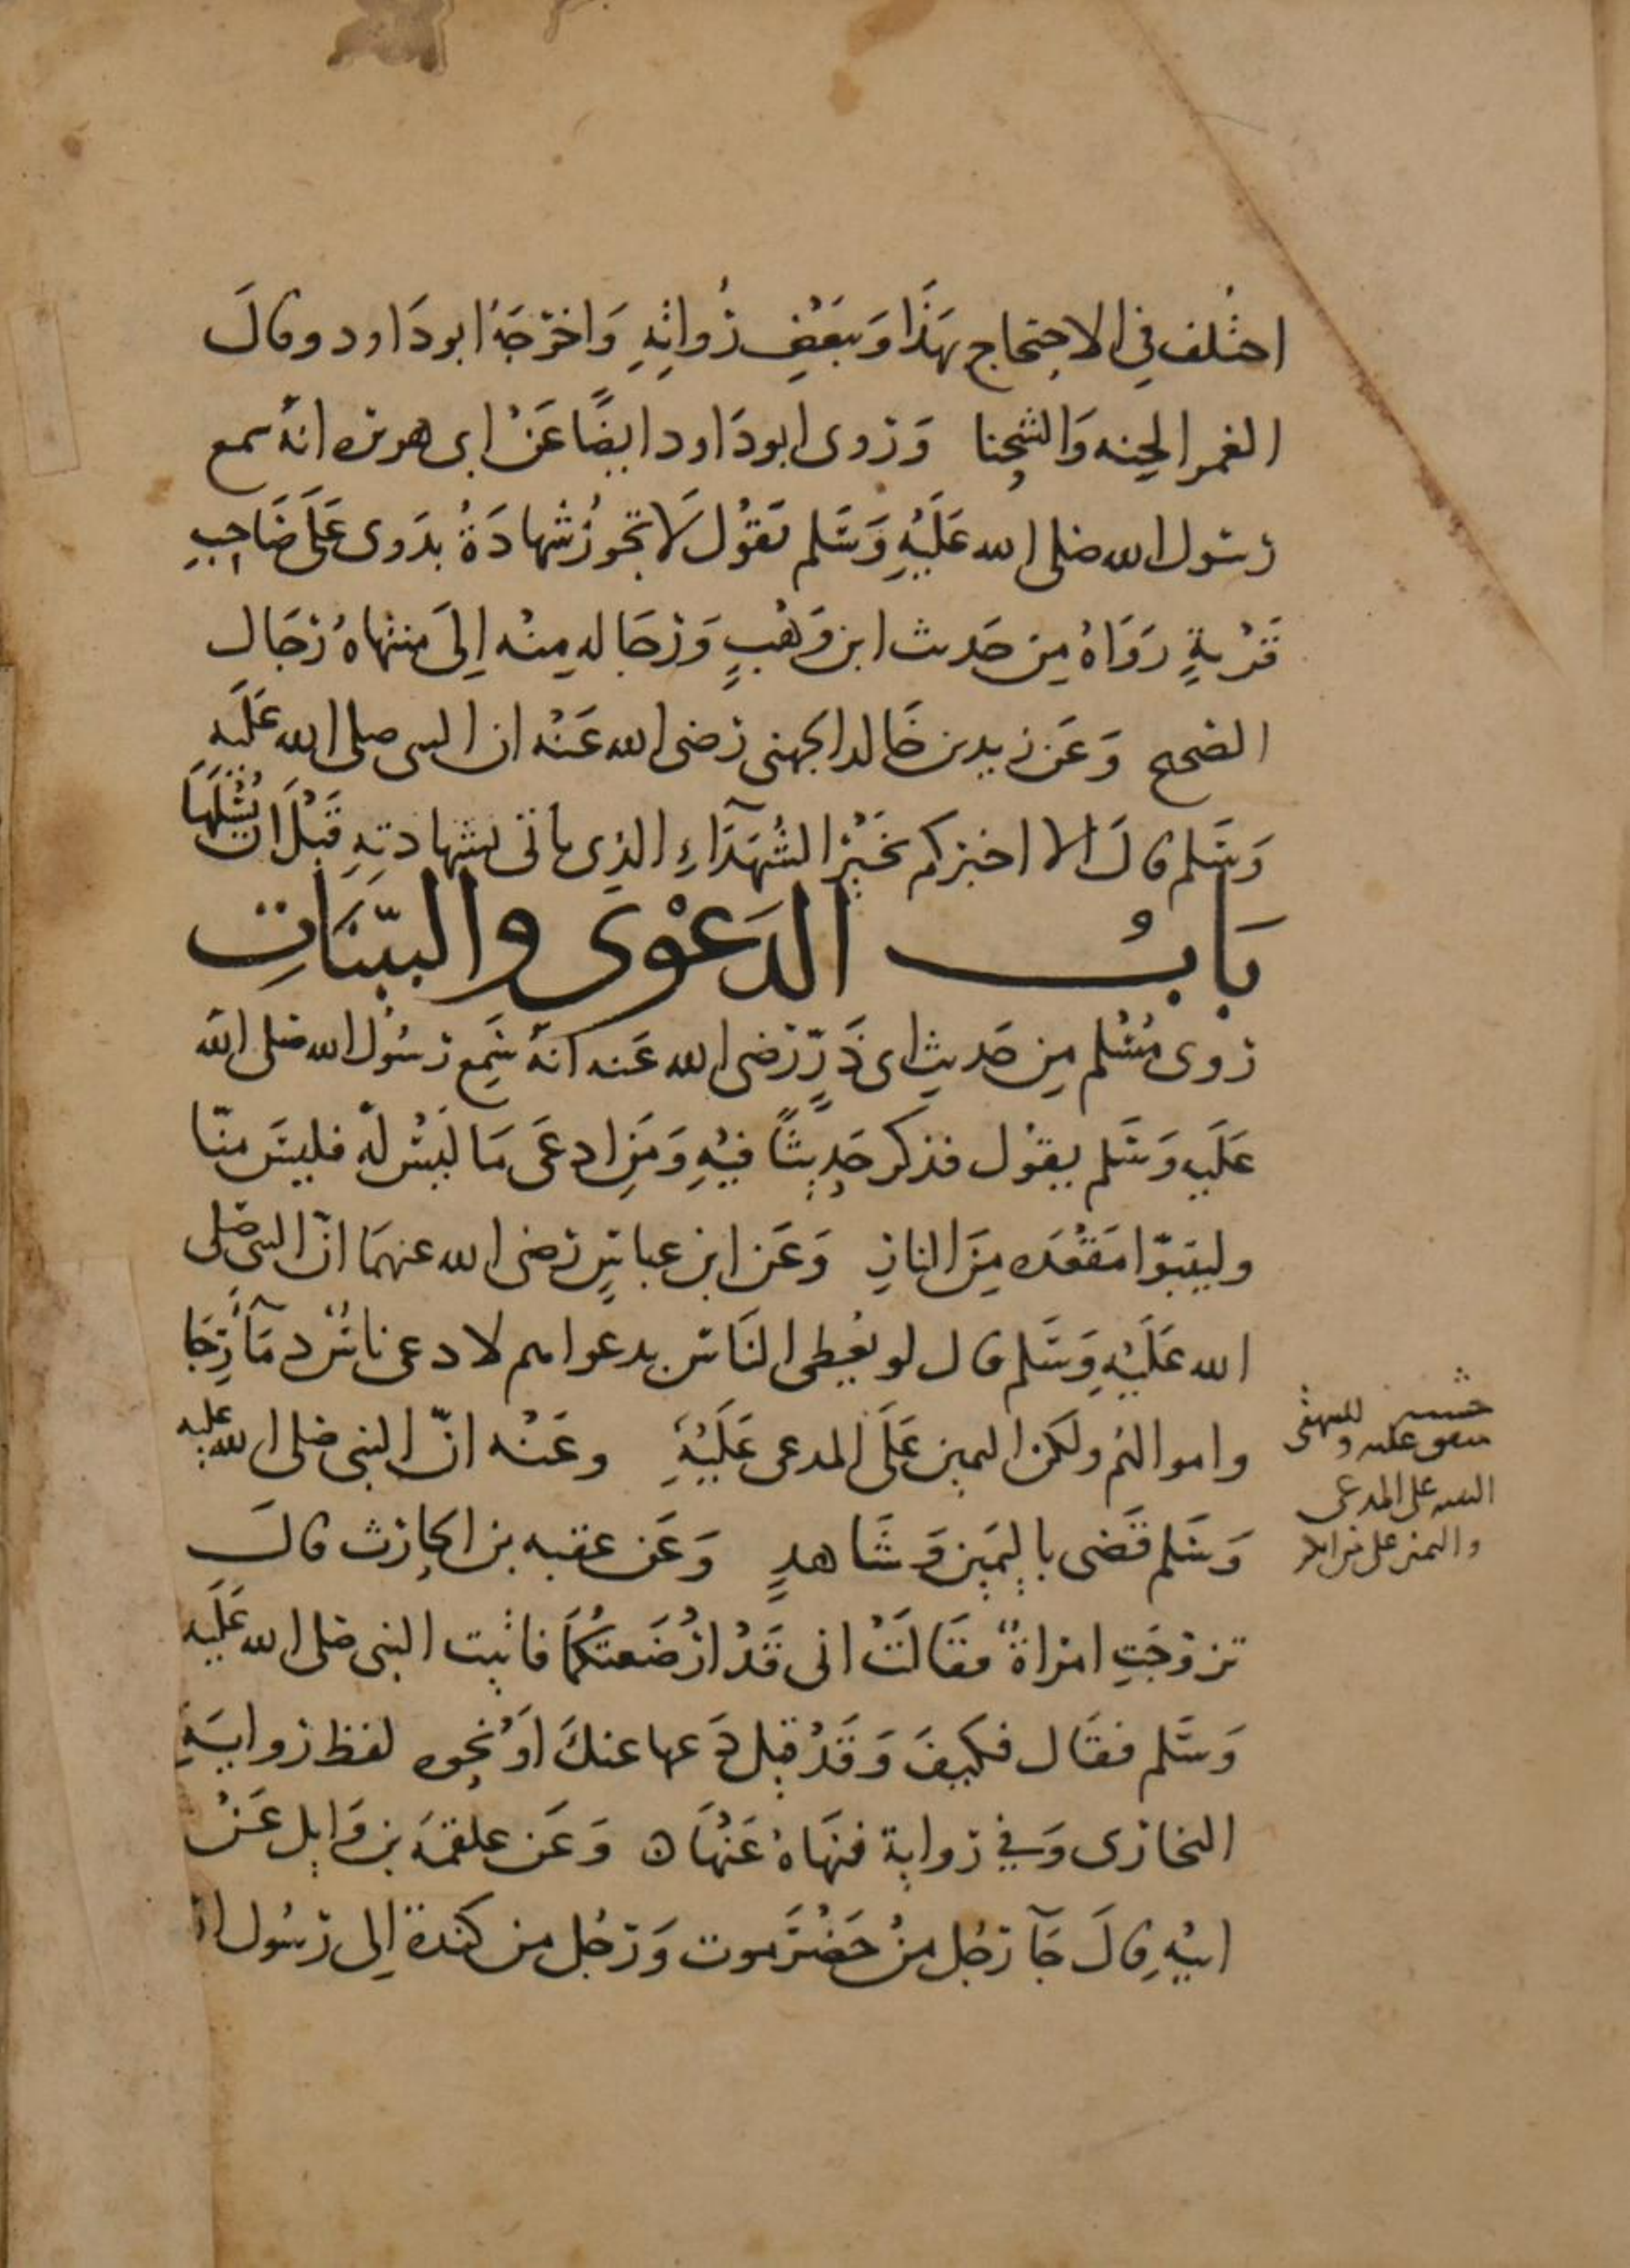 اختُلف فِي الاحتجاج بهَذَا وَبَعْضِ رُواتِهِ وَاخرَجَهُ ابو دَاود وقالَ
الغمر الحِنه وَالشحِنا وَرَوى ابو دَاود ايضًا عَنْ ابى هريره انهُ سمع
رسَول الله صلى الله عَلَيْهِ وَسَلم يقوُل لَا تجوزُ شهادَةُ بدَوى عَلَى صَاحِبِ
قَرْيةٍ رَوَاهُ مِن حَديث ابن وَهْبٍ وَرجَاله مِنْه اِلَى منتهاهُ رجَال
الصحيح وَعَن زيد بن خَالد الجهنى رَضى الله عَنْه ان النبى صلى الله عَلَيهِ
وَسَلم قالَ الا اخبركم بخَيْر الشُهَدَآءِ الذِى ياتى بشهادتِهِ قَبْلَ ان يُسْئَلَهَا
بَابُ الدَعْوَى والبيّنَاتِ
رَوى مُسْلم مِن حَديثِ ابى ذَرّ رَضى الله عَنه انهُ سَمِع رَسُول الله صلى الله
عَلَيهِ وَسَلم يقوُل فذكر حَدِيثًا فيْهِ وَمَنِ ادعَى مَا ليَسْ لهُ فليسَ منّا
وليتبَوّا مَقْعَده مِنَ النارِ وَعَن ابن عباسٍ رَضى الله عنهمَا انّ النبى صلى
الله عَلَيْهِ وَسَلم قال لو يُعْطى النَاسَ بدعواهم لادعى ناسٌ دمَآ رجَا
واموالهُم ولكن اليمِين عَلَى المدعى عَلَيْهِ وعَنْه انّ النبى صلى الله عليه
وَسَلم قَضى باليَمِين وَشَاهدٍ وَعَن عقبه بن الحارِث قالَ
تزوّجَتِ امْراةٌ فقَالَتْ انى قَدْ ارْضَعتكُمَا فاتيت النبى صلى الله عَلَيه
وَسَلم فقَال فكيفَ وَقَدْ قيل دَعها عنكَ اوْ نحوه لفظ رَوايَةِ
البخارَى وَفِي رَواية فنهَاهُ عَنْهَا وَعَن علقمَهَ بن وَايِل عَنْ
ابيْهِ قالَ جَآ رَجُل مِنْ حَضْرَموت وَرَجُل من كندة اِلى رَسُول ال
للبيهقى
متفق عليه و
البينه على المدعى
واليمين على من انكر